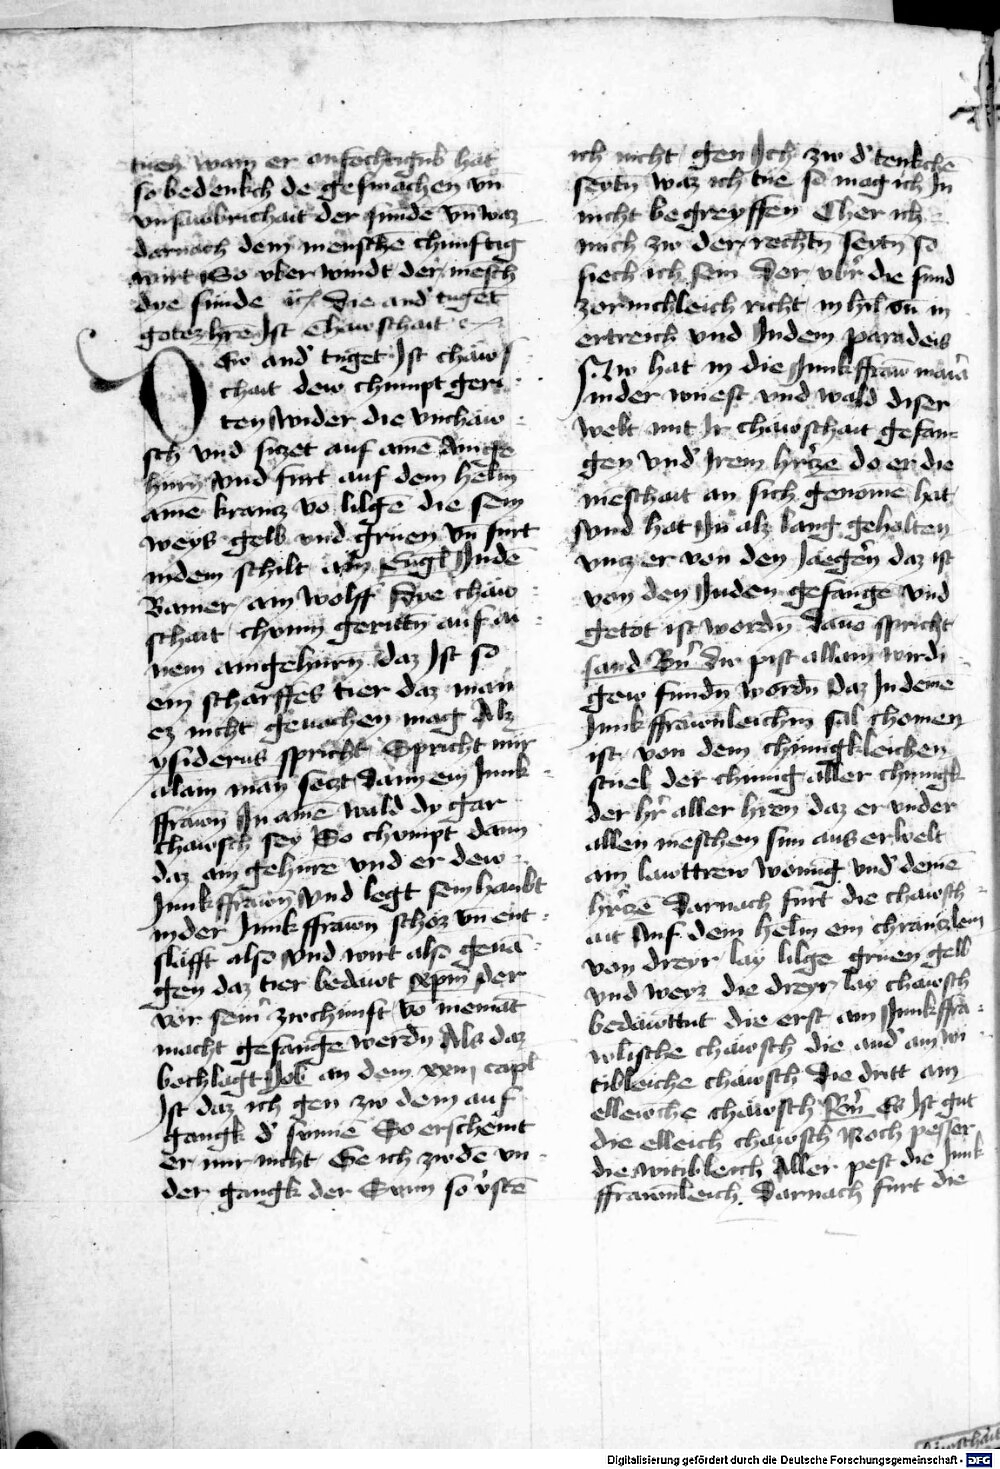 tuen wann er anfechtigung hat
so bedenkch de gesmachen vn̄
vnsawbrichait der sunde vn̄ waz
darnach dem mensche chunftig
wirt So vber windt der mesch
dye sunde Die and' tuget
gotez hre Ist Chawschait
Dew and' tuget Ist chaw
chait dew chumpt geri
ten Wider die vnchaw
sch vnd siczet auf ame Ainge
hurn Vnd furt auf dem helm
ame krancz vo lilge die sein
weys gelb vnd gruen vn̄ furt
indem schilt ain Engl Inde
Baner am wolff Dye chaw
schait chumpt geritn auf ai
nem aingehurn daz Ist so
ein scharffes tier daz man
ez nicht geuachen mag Alz
ysiderus spricht Spricht mir
alain man seczt dann ein Junk
ffrawn In ame wald dy gar
chawsch sey So chumpt dann
daz ain gehurn vnd er dew
Junkffrawn Vnd legt sein haubt
inder Junkffrawn schoz vn ent
slafft also Vnd wirt also geua
gen daz tier bedawt xpm̄ der
vor sein' zwchunft vo niemāt
macht gefange werdn Als daz
bechlagt Job an dem xxiij capl
Ist daz ich gen zw dem auf
gangk d' sunne So erscheint
er mir nicht Ge ich zwde vn
der gangk der Sunn so v'ste
ich nicht gen Ich zw d' tenkche
seytn waz ich tue so mag ich In
nicht begreyffen Cher ich
mich zw der rechtn seytn so
siech ich sein Der vbr' die sund
zornichleich richt in hyl vn̄ in
ertreich vnd Indem paradeis
Nw hat in die Junkffraw maria
Inder wuest vnd wald diser
Welt mit Ir chawschait gefan
gen vnd Irem hrcze do er die
meschait an sich genome hat
Vnd hat In alz lang gehalten
vncz er von den Jaegern daz ist
von den Juden gefange vnd
getot ist wordn Dauo spricht
sand Dw pist allain wirdi
gew fundn wordn daz In deme
Junkffrawnleichm sal chomen
ist von dem chunigkleichen
stuel der chunig aller chunigk
der hr' aller hren daz er vnder
allen meschen sun aus erwelt
ain lawttrew wonūg vnd deme
hrcze Darnach furt die chawsch
ait Auf dem helm ein chranczlein
von dreyr lay lilge gruen gelb
vnd weyz die dreyr lay chawsch
bedawttnt die erst ain Junkffra
wlische chawsch die and' ain wi
tibleiche chawsch Die dritt ain
elleiche chawsch Es Ist gut
die elleich chawsch Noch pesser
die witibleich Aller pest die Junk
ffrawnleich Darnach furt die
Digitalisierung gefördert durch die Deutsche Forschungsgemeinschaft - DFG